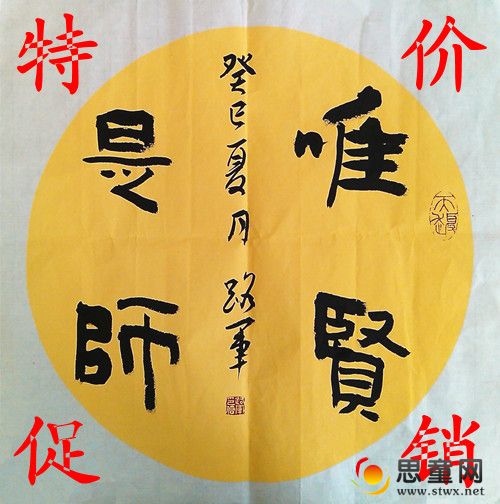 特价
唯賢
是師
癸巳夏月 路军
促销
思童网
www.stwx.net